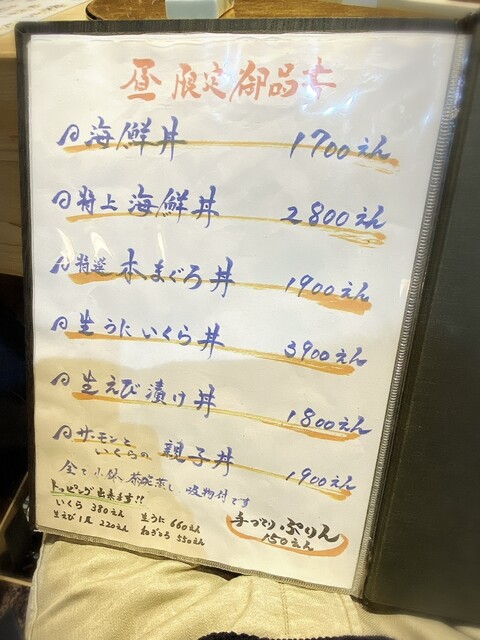 昼限定御品書
海鮮丼 1700えん
特上海鮮丼 2800えん
特選 本まぐろ丼 1900えん
生うにいくら丼 3900えん
生えび漬け丼 1800えん
サーモンと
いくらの 親子丼 1900えん
全て小鉢、茶碗蒸し、吸物付です
トッピング出来ます!!
いくら 380えん 生うに 660えん
生えび1尾 220えん ねぎとろ 550えん
手づくりぷりん
150えん